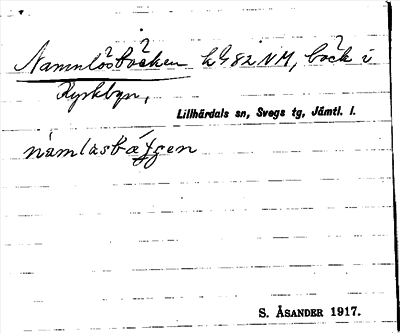 Namnlösbäcken k 982 NM, bäck i
Kyrkbyn,
Lillhärdals sn, Svegs tg, Jämtl. l.
nàmlàsbä́ɟ̣en
S. ÅSANDER 1917.